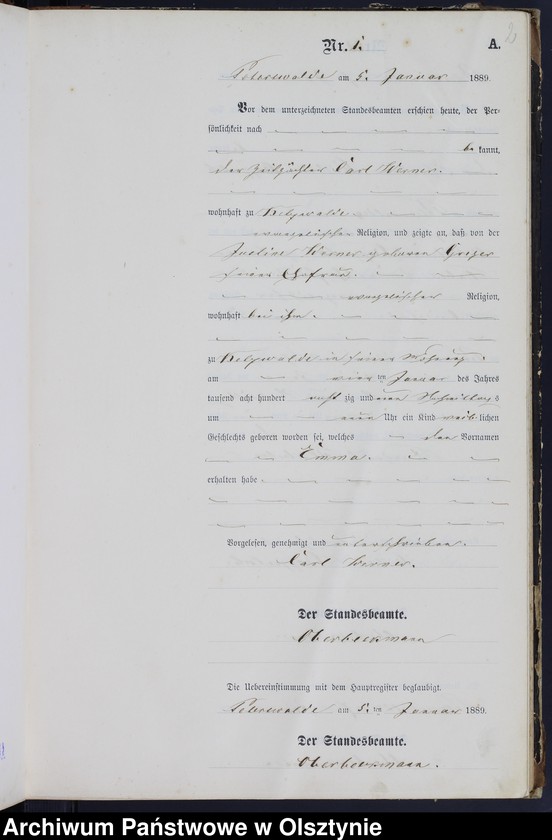 2
Nr. 1.
A.
Peterswalde am 5. Januar 1889.
Vor dem unterzeichneten Standesbeamten erschien heute, der Per-
sönlichkeit nach
be kannt,
der Carl Werner.
wohnhaft zu
evangelischer Religion, und zeigte an, daß von der
Justine Werner geborenen
seiner Ehefrau.
evangelischer Religion,
wohnhaft bei ihm.
zu in seiner Wohnung
am vier ten Januar des Jahres
tausend acht hundert acht zig und neun Nachmittags
um neun Uhr ein Kind weib lichen
Geschlechts geboren worden sei, welches den Vornamen
Emma.
erhalten habe
Vorgelesen, genehmigt und unterschrieben.
Carl Werner.
Der Standesbeamte.
Oberbeckmann
Die Uebereinstimmung mit dem Hauptregister beglaubigt.
Peterswalde am 5. ten Januar 1889.
Der Standesbeamte.
Oberbeckmann.
Archiwum Państwowe w Olsztynie